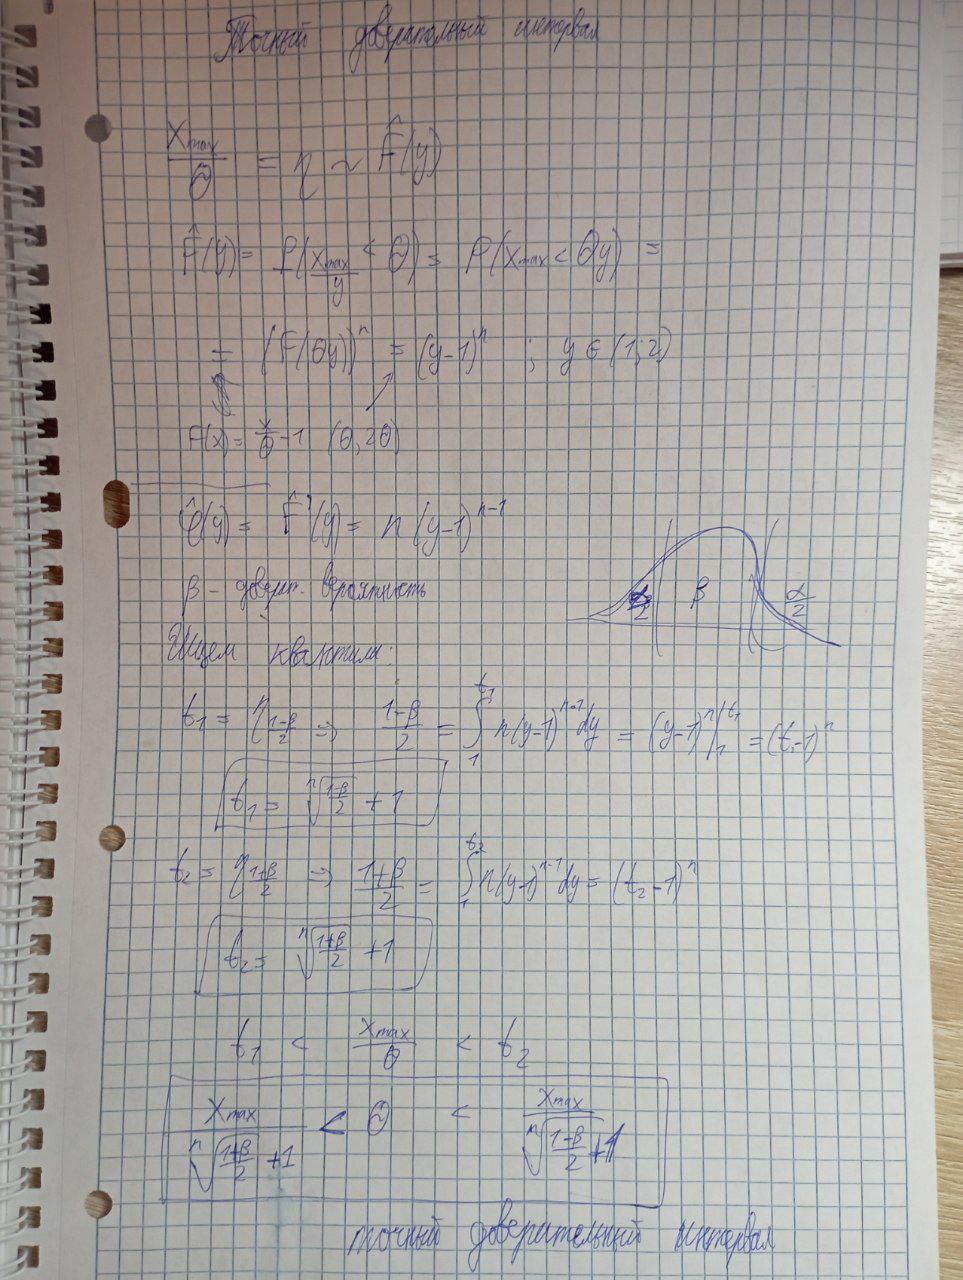 Точный доверительный интервал
X_max/θ = η ~ F̂(y)
F̂(y) = P(X_max/y < θ) = P(X_max < θy) =
= (F(θy))^n = (y-1)^n ; y ∈ (1; 2)
F(x) = x/θ - 1 (θ, 2θ)
φ̂(y) = F̂'(y) = n(y-1)^(n-1)
β - доверит. вероятность
α/2 β α/2
Ищем квантили:
t₁ = η_((1-β)/2) ⇒ (1-β)/2 = ∫₁^(t₁) n(y-1)^(n-1) dy = (y-1)^n |₁^(t₁) = (t₁-1)^n
t₁ = ⁿ√((1-β)/2) + 1
t₂ = η_((1+β)/2) ⇒ (1+β)/2 = ∫₁^(t₂) n(y-1)^(n-1) dy = (t₂-1)^n
t₂ = ⁿ√((1+β)/2) + 1
t₁ < X_max/θ < t₂
X_max/(ⁿ√((1+β)/2) + 1) < θ < X_max/(ⁿ√((1-β)/2) + 1)
точный доверительный интервал